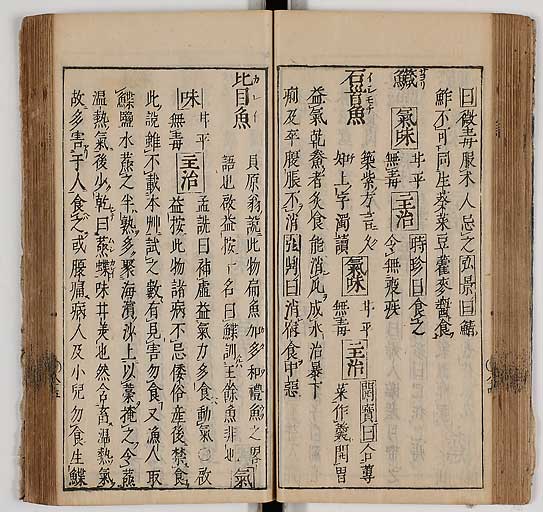 曰微毒服朮人忌之弘景曰鯖
鮓不可同生葵菜豆藿麥醬食
鱵 氣味 甘平無毒 主治 時珍曰食之令無疫疾
石首魚 イシモチ 築紫方言久知上字濁讀 氣味 甘平無毒 主治 開寶曰合蓴菜作羹開胃
益氣乾鮝者炙食能消瓜成水治暴下
痢及卒腹脹不消張鼎曰消宿食中惡
比目魚 カレイ 貝原翁說此物扁魚加多和禮魚之畧
語也啟益按一名曰鰈訓王餘魚非也 氣
味 甘平無毒 主治 孟詵曰補虛益氣力多食動氣○啟
益按此物諸病不忌倭俗產後禁食
此說雖不載本艸試之數有見害勿食又漁人取
鰈鹽水蒸之半熟多聚海濱沙上以藁掩之令蒸
溫熱氣後少乾曰蒸鰈味甘美也然含畜溫熱氣
故多害于人食之或腹痛病人及小兒勿食生鰈